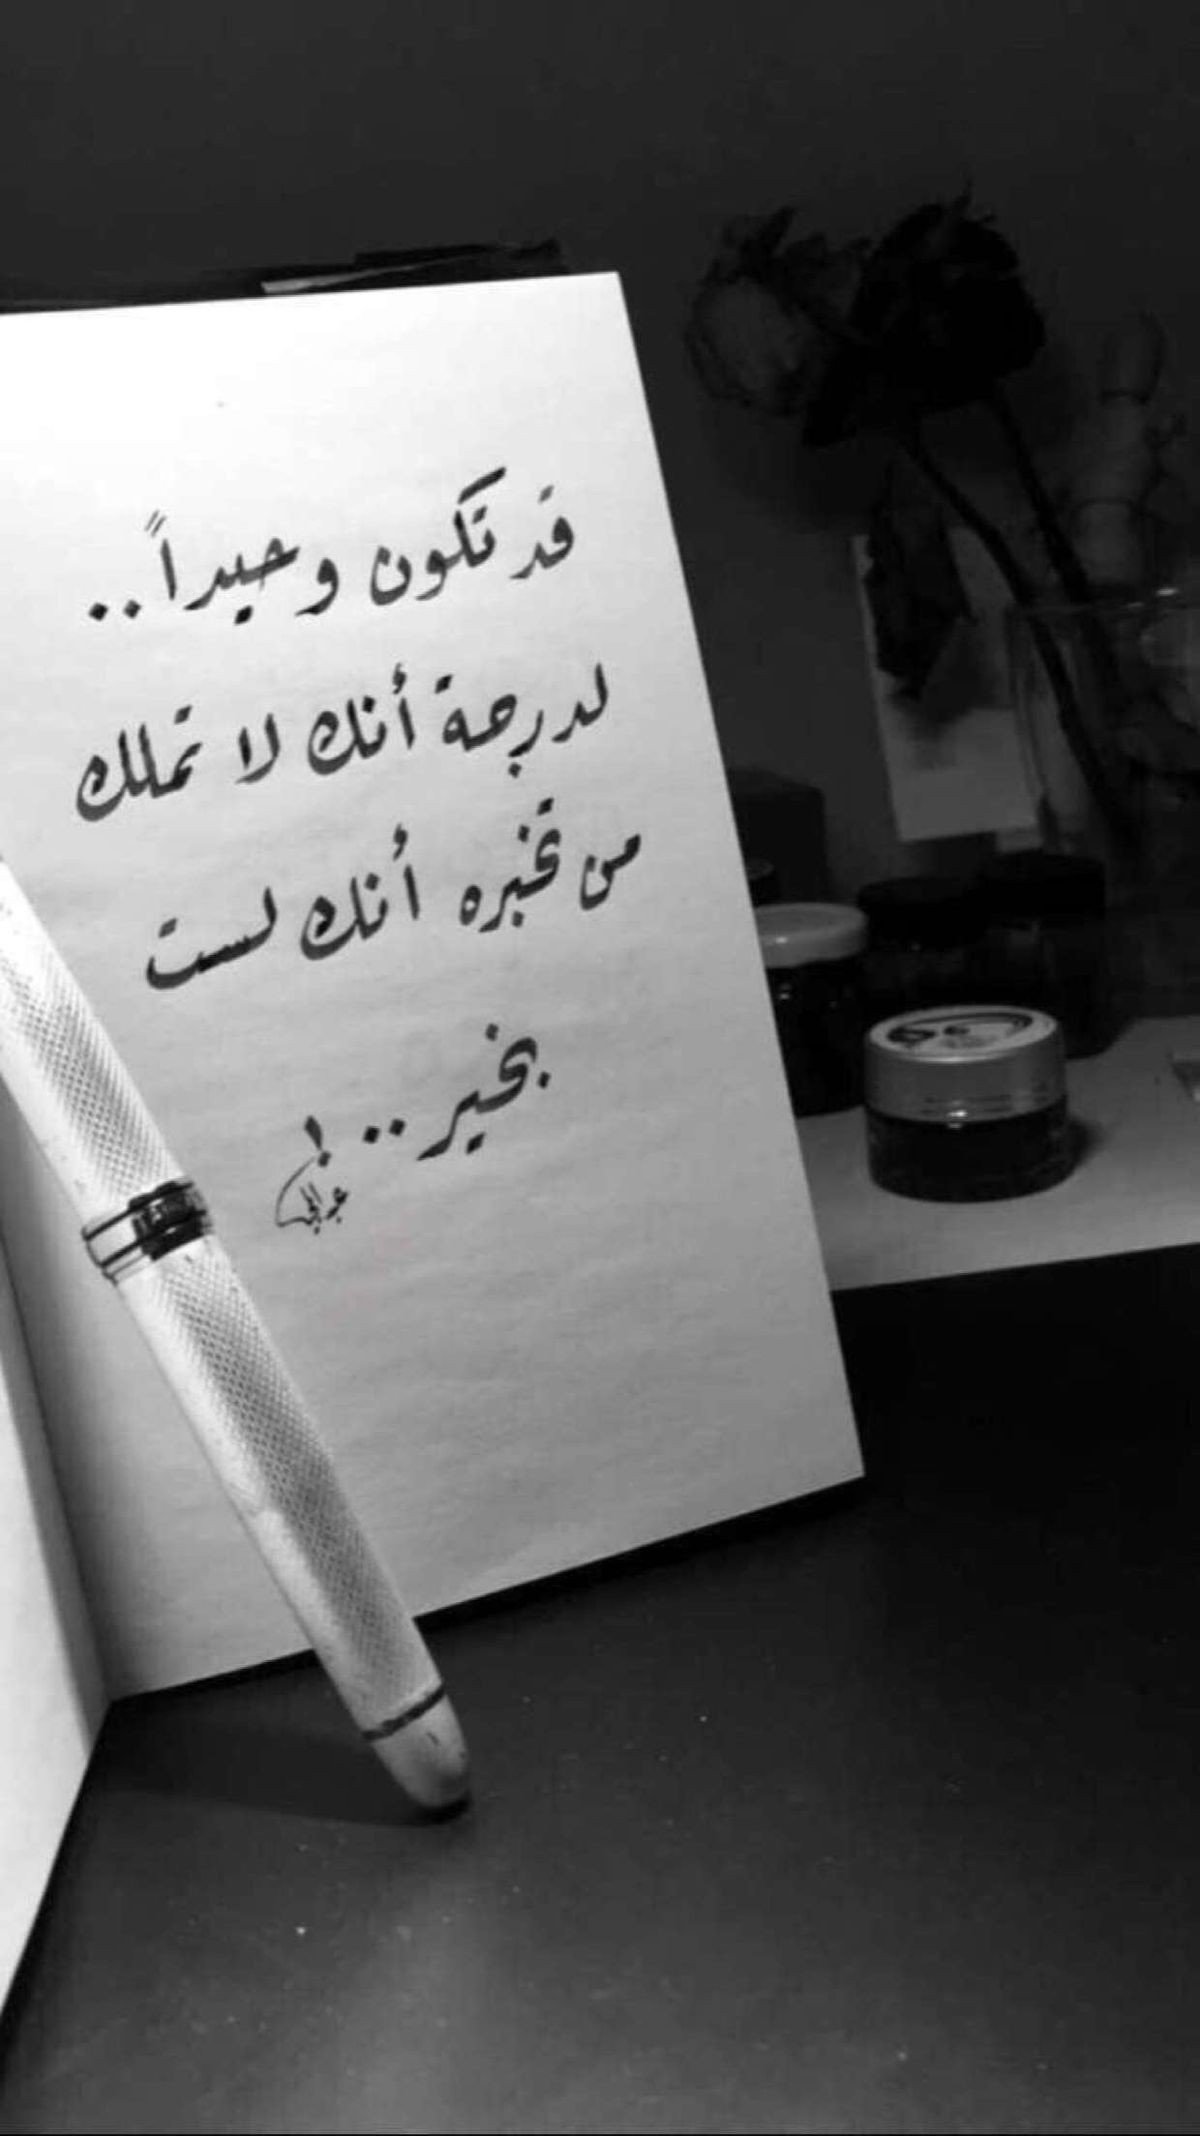 قد تكون وحيداً..
لدرجة أنك لا تملك
من تخبره أنك لست
بخير..!